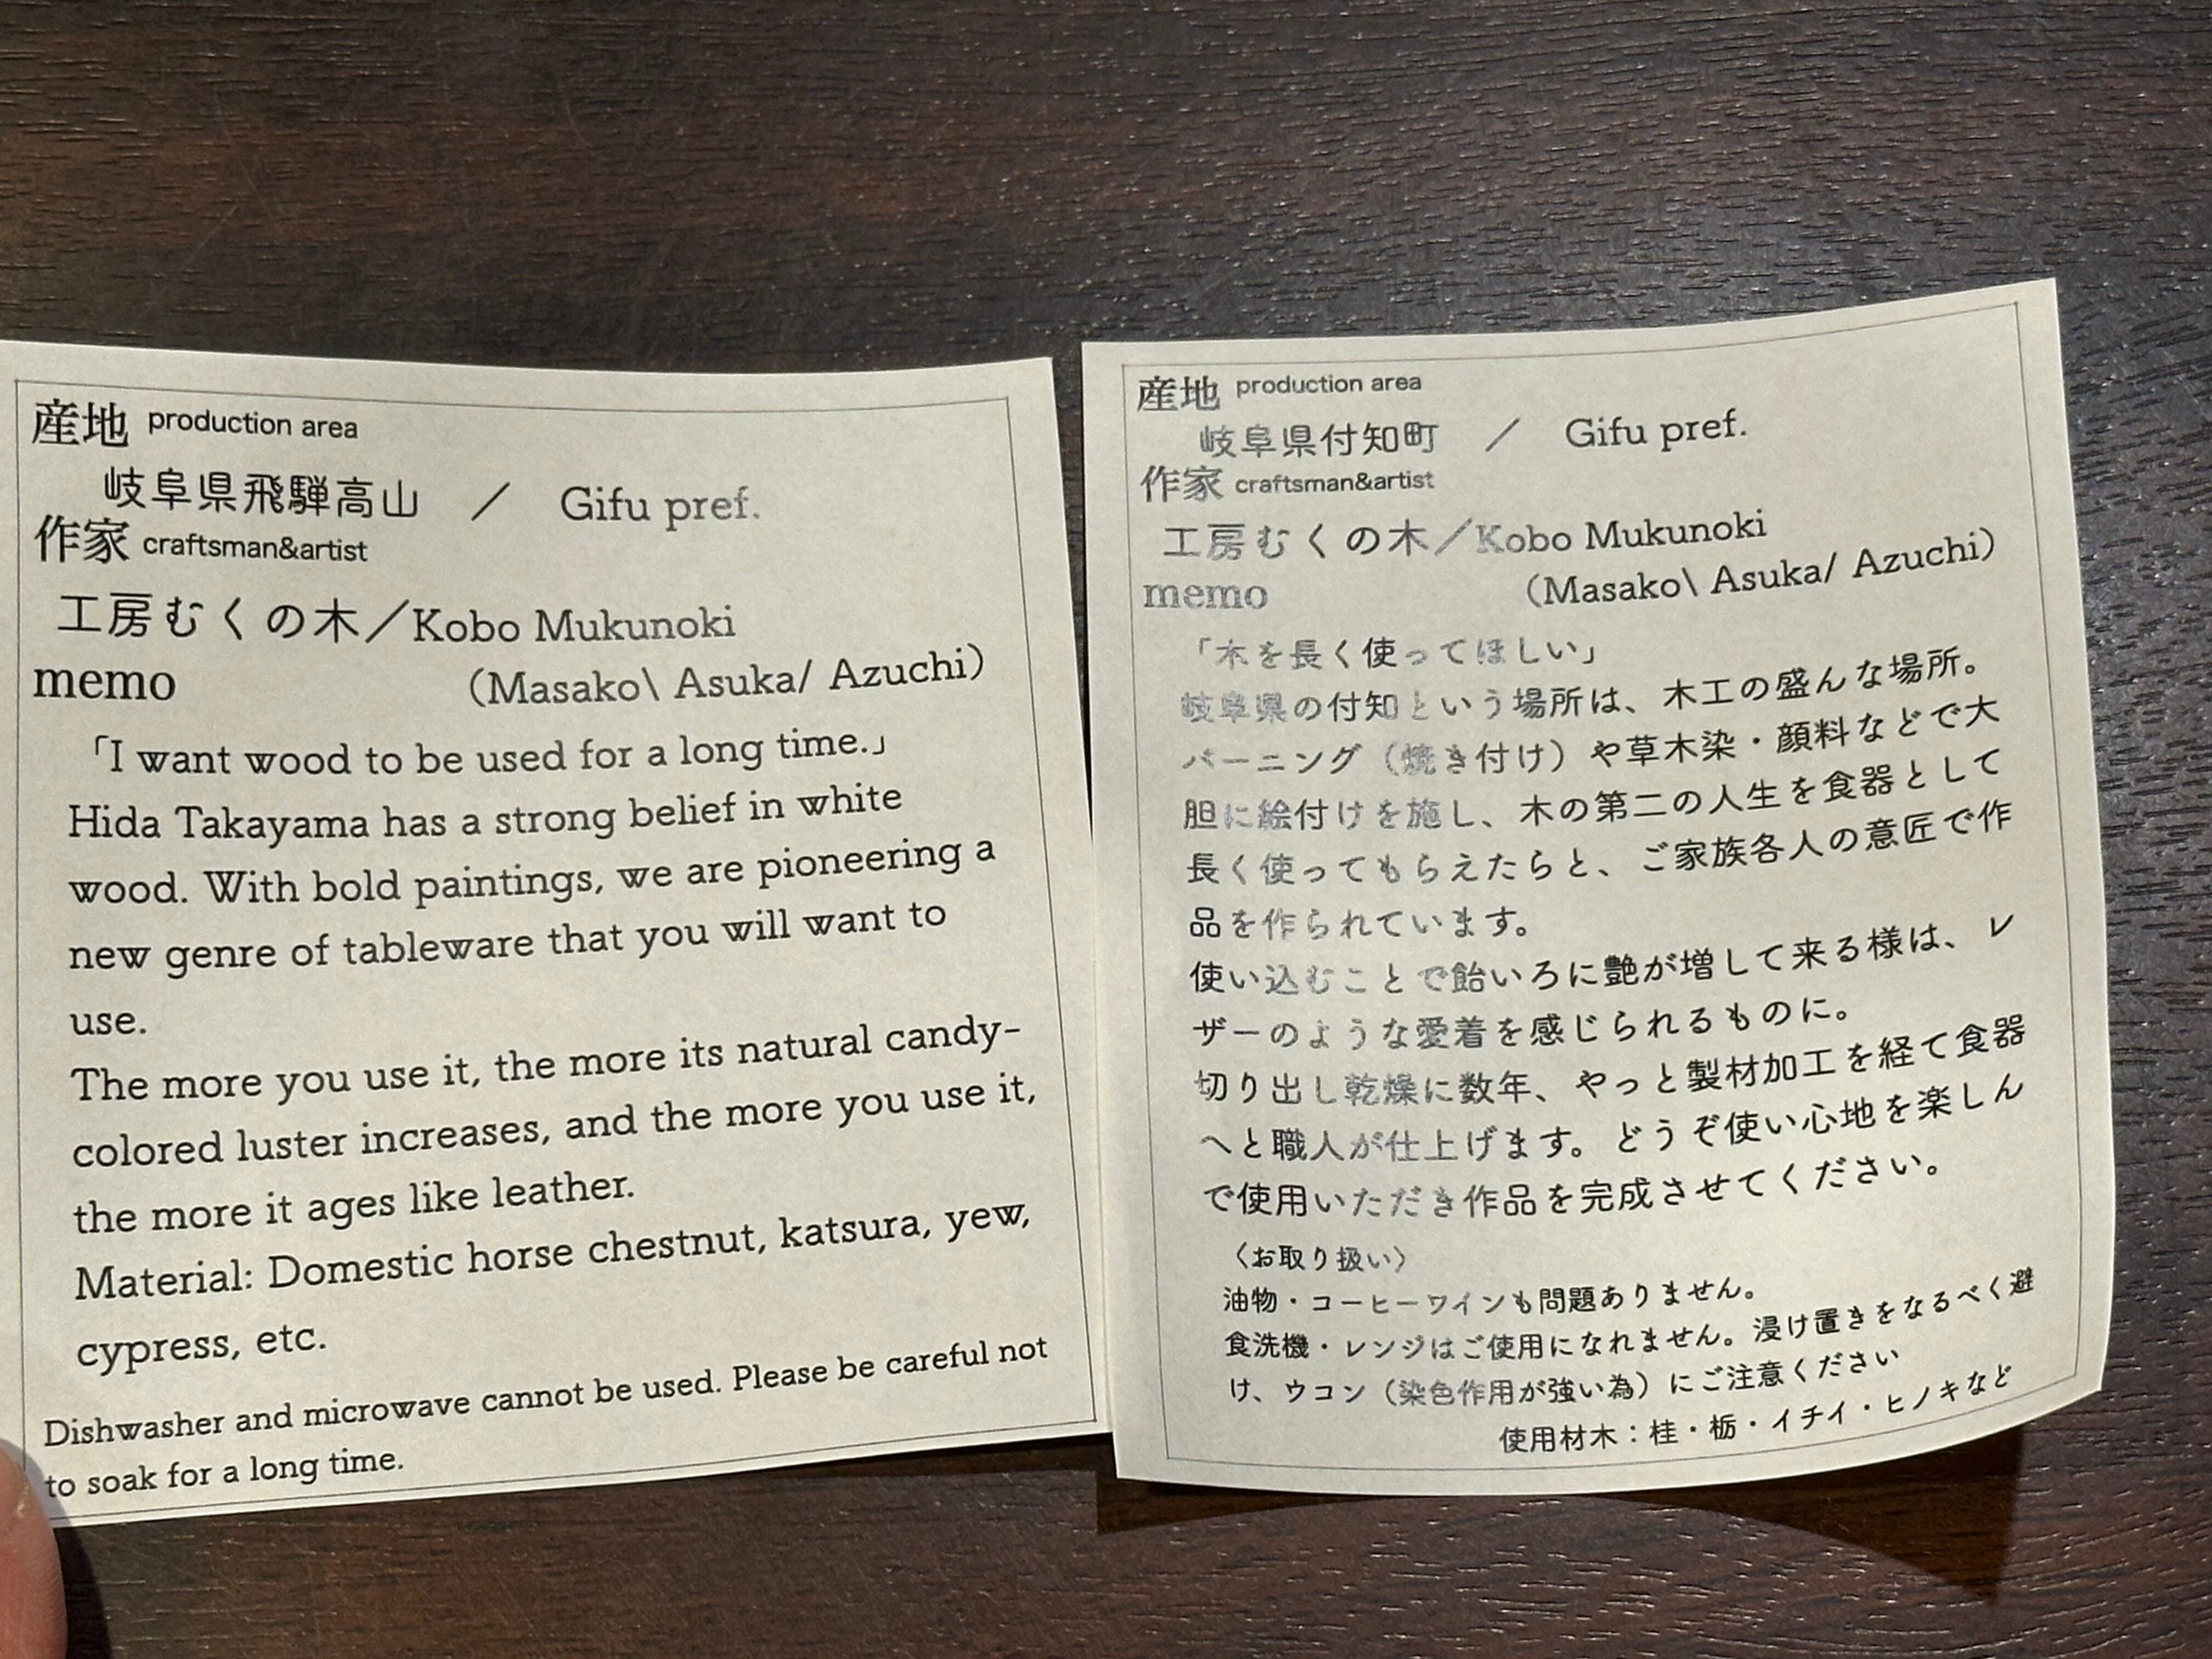 産地 production area
岐阜県飛騨高山 ／ Gifu pref.
作家 craftsman&artist
工房むくの木／Kobo Mukunoki
memo (Masako\ Asuka/ Azuchi)
「I want wood to be used for a long time.」
Hida Takayama has a strong belief in white
wood. With bold paintings, we are pioneering a
new genre of tableware that you will want to
use.
The more you use it, the more its natural candy-
colored luster increases, and the more you use it,
the more it ages like leather.
Material: Domestic horse chestnut, katsura, yew,
cypress, etc.
Dishwasher and microwave cannot be used. Please be careful not
to soak for a long time.
産地 production area
岐阜県付知町 ／ Gifu pref.
作家 craftsman&artist
工房むくの木／Kobo Mukunoki
memo (Masako\ Asuka/ Azuchi)
「木を長く使ってほしい」
岐阜県の付知という場所は、木工の盛んな場所。
バーニング（焼き付け）や草木染・顔料などで大
胆に絵付けを施し、木の第二の人生を食器として
長く使ってもらえたらと、ご家族各人の意匠で作
品を作られています。
使い込むことで飴いろに艶が増して来る様は、レ
ザーのような愛着を感じられるものに。
切り出し乾燥に数年、やっと製材加工を経て食器
へと職人が仕上げます。どうぞ使い心地を楽しん
で使用いただき作品を完成させてください。
〈お取り扱い〉
油物・コーヒーワインも問題ありません。
食洗機・レンジはご使用になれません。浸け置きをなるべく避
け、ウコン（染色作用が強い為）にご注意ください
使用材木：桂・栃・イチイ・ヒノキなど